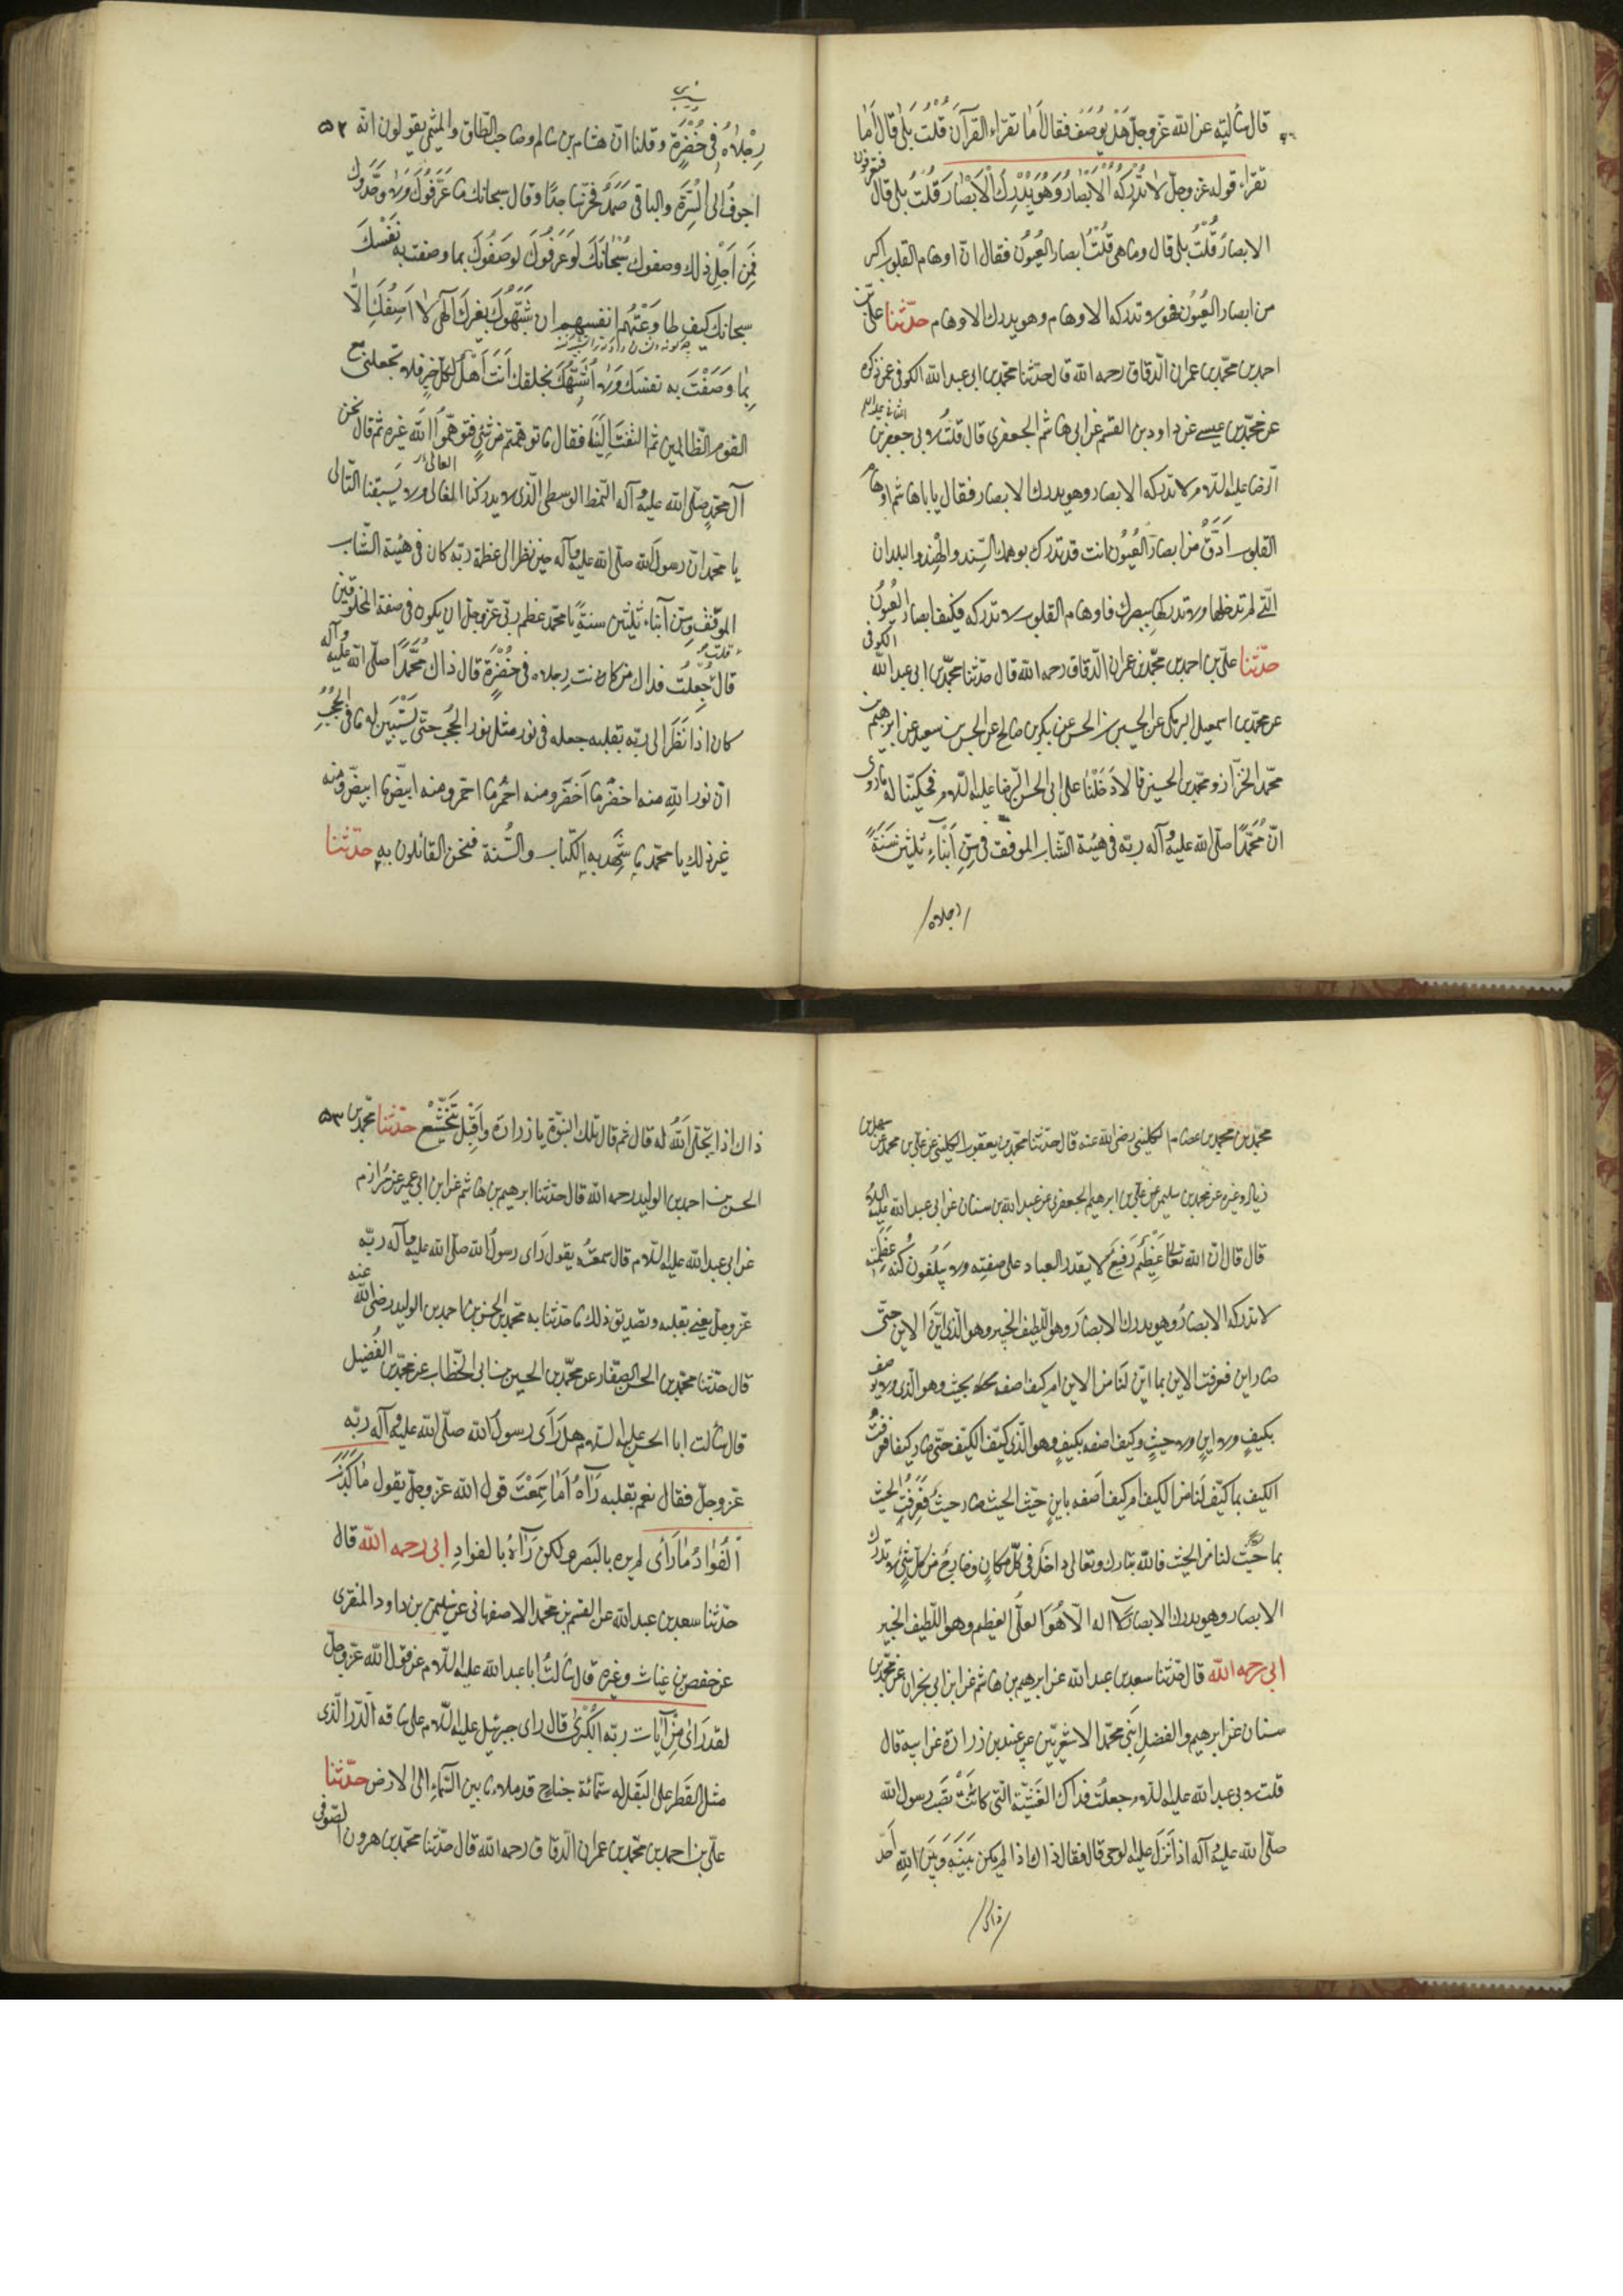 قال سألته عن الله عزّ وجلّ هل يُوصَف فقال أَما تقرأ القرآن قُلْتُ بلى قال أَما
تقرأ قوله عزّ وجلّ لا تُدْرِكُهُ الْأَبْصارُ وَهُوَ يُدْرِكُ الْأَبْصارَ قُلْتُ بلى قال فتعرفون
الابصارَ قُلْتُ بلى قال وما هى قُلْتُ ابصار العُيُون فقال انّ اوهام القلوب اكبر
من ابصار العُيُون فهو لا تدركه الاوهام وهو يدرك الاوهام حدّثنا علىّ بن
احمد بن محمّد بن عمران الدّقاق رحمه الله قال حدّثنا محمّد بن ابى عبد الله الكوفى عمّن ذكره
عن محمّد بن عيسى عن داود بن القسم عن ابى هاشم الجعفرى قال قلتُ لابى جعفر بن
الرّضا عليه السّلام لا تدركه الابصار وهو يدرك الابصار فقال يا با هاشم اوهام
القلوب اَدَقُّ من ابصار العُيُون انت قد تدرك بوهمك السِّند والهِند والبلدان
الّتى لم تدخلها ولا تدركها ببصرك فاوهام القلوب لا تدركه فكيف ابصار العُيُون
حدّثنا علىّ بن احمد بن محمّد بن عمران الدّقاق رحمه الله قال حدّثنا محمّد بن ابى عبد الله الكوفى
عن محمّد بن اسمعيل البرمكى عن الحسين بن الحسن عن بكر بن صالح عن الحسن بن سعيد عن ابرهيم بن
محمّد الخزّاز ومحمّد بن الحسين قالا دَخَلْنا على ابى الحسن الرّضا عليه السّلام فحكينا له ما روى
انّ مُحَمَّدًا صلّى الله عليه وآله ربّه فى هيئة الشّاب الموفق فى سِنّ اَبْناءِ ثلثين سَنَةً
رجلاه
رِجْلاهُ فى خُضْرَةٍ وقلنا انّ هشام بن سالم وصاحب الطّاق والميثمى يقولون انّه ٥٢
اجوفُ الى السُّرَّةِ والباقى صَمَدٌ فخرّ ساجدًا وقال سبحانك ما عَرَفُوكَ وَلا وحّدوك
فَمِن اَجْلِ ذلك وصفوك سُبْحانَكَ لَوْ عَرَفُوكَ لوصَفُوكَ بما وصفت به نَفْسَكَ
سبحانك كيف طاوَعَتْهُم انفسهم ان شَبَّهُوكَ بغيرك آلهى لا اَصِفُكَ اِلّا
بِما وَصَفْتَ به نفسَك وَلا اُشَبِّهُكَ بخلقك اَنْتَ اَهْلٌ لكلّ خيرٍ فلا تجعلنى مع
القوم الظّالمين ثمّ التفتَ اِلَيْنا فقال ما توهّمتم من شىٍء فتوهّموا الله غيره ثم قال نحن
آل محمّدٍ صلّى الله عليه وآله النّمط الوسطى الّذى لا يدركنا الغالى ولا يَسبقنا التّالى
يا محمّد انّ رسول الله صلّى الله عليه وآله حين نظر الى عظمة ربّه كان فى هيئة الشّاب
الموفّق وسِنّ اَبناء ثلثين سنةً يا محمّد عظم ربّى عزّ وجلّ ان يكون فى صفة المخلوقين
قال قلت جُعِلْتُ فداك من كانت رِجلاه فى خُضْرَةٍ قال ذاك مُحَمَّدًا صلّى الله عليه وآله
كان اذا نَظَرَ الى ربّه بقلبه جعله فى نور مثل نور الحُجُب حتّى يَسْتَبِين له ما فى الحُجُبِ
انّ نور اللهِ منه اخضر ما اَخضَر ومنه احمر ما احمر ومنه ابيض ما ابيضّ ومنه
غير ذلك يا محمّد ما شهد به الكتاب والسُّنة فنحن القائلون به حدّثنا
محمّد بن محمّد بن عصام الكلينى رضى الله عنه قال حدّثنا محمّد بن يعقوب الكلينى عن علىّ بن محمّد عن سهل بن
زياد وغيره عن محمّد بن سليمن عن علىّ بن ابرهيم الجعفرى عن عبد الله بن سنان عن ابى عبد الله عليه السّلام
قال قال انّ الله تعالى عَظيمٌ رَفيعٌ لا يقدر العباد على صفتِه ولا يَبلُغُونَ كُنْهَ عَظَمَتِهِ
لا تدركه الابصارُ وهو يدرك الابصارَ وهو اللّطيف الخبير وهو الّذى ايّنَ الاين حتّى
صار اين فعرفت الاين بما ايّن لنا من الاين ام كيف اصفه بحيث وهو الّذى ولا يوصف
بكيفٍ ولا اينٍ ولا حيثٍ وكيف اصفه بكيفٍ وهو الّذى كيّف الكيف حتّى صار كيفا فعرفتُ
الكيف بما كيّف لنا من الكيف ام كيف اَصفه باينٍ حيّث الحيث صار حيثُ فَعَرَفْتُ الحيث
بما حَيّثَ لنا من الحيث فالله تبارك وتعالى داخل فى كلّ مكانٍ وخارجٌ من كلّ شىءٍ لا تدركه
الابصار وهو يدرك الابصار لا اله الّا هُوَ العلىّ العظيم وهو اللّطيف الخبير
ابى رحمه الله قال حدّثنا سعد بن عبد الله عن ابرهيم بن هاشم عن ابن ابى نجران عن محمّد بن
سنان عن ابرهيم والفضل ابنى محمّد الاشعريّين عن عبيد بن زرارة عن ابيه قال
قلت لابى عبد الله عليه السّلام جعلت فداك الغَشْيَة الّتى كانَتْ تُصيب رسول الله
صلّى الله عليه وآله اذا نَزَلَ عليه الوحى قال فقال ذاك اذا لم يكن بَيْنَهُ وَبَيْنَ اللهِ اَحَدٌ
ذاك
ذاك اذا تجلّى اَللهُ له قال ثم قال تلك النبوّة يا زرارة واَقْبَلَ يَتَخَشَّعُ حدّثنا محمّد بن ٥٣
الحسن بن احمد بن الوليد رحمه الله قال حدّثنا ابرهيم بن هاشم عن ابن ابى عمير عن مُرازم
عن ابى عبد الله عليه السّلام قال سمعتُه يقول رَاى رسول الله صلّى الله عليه وآله ربّه
عزّ وجلّ يعنى بقلبه وتصديق ذلك ما حدّثنا به محمّد بن الحسن بن احمد بن الوليد رضى الله عنه
قال حدّثنا محمّد بن الحسن الصفّار عن محمّد بن الحسين بن ابى الخطّاب عن محمّد بن الفُضيل
قال سألت ابا الحسن عليه السلام هل رَاَى رسول الله صلّى الله عليه وآله ربّه
عزّ وجلّ فقال نعم بقلبه رَآهُ اَمَا سَمِعْتَ قول الله عزّ وجلّ يقول مٰا كَذَبَ
الْفُؤادُ مٰا رَأى لم يره بالبَصَر ولكن رَآهُ بالفوادِ ابى رحمه الله قال
حدّثنا سعد بن عبد الله عن القسم بن محمّد الاصفهانى عن سليمن بن داود المنقرى
عن حفص بن غياث وغيره قال سَألتُ ابا عبد الله عليه السّلام عن قول الله عزّ وجلّ
لقد رَاى مِنْ آيات ربّه الكُبْرىٰ قال راى جبرئيل عليه السّلام على ساقه الدّر الّذى
مثل القَطر على البَقْل له ستّمائة جناح قد ملاء ما بين السّماءِ الى الارض حدّثنا
علىّ بن احمد بن محمّد بن عمران الدّقاق رحمه الله قال حدّثنا محمّد بن هرون الصّوفى